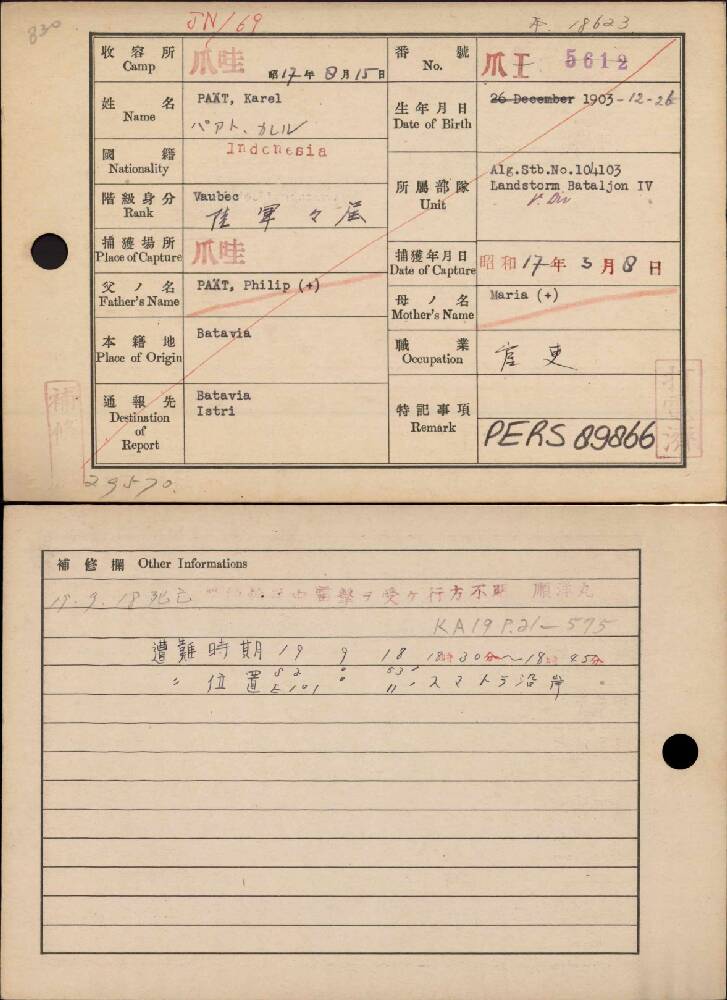 830
JN/69
18623
收容所 Camp
爪哇
昭17年8月15日
番號 No.
爪王 5612
姓名 Name
PAXT, Karel
パアト、カレル
生年月日 Date of Birth
26 December 1903-12-26
國籍 Nationality
Indonesia
階級身分 Rank
Vaubec
陸軍
所屬部隊 Unit
Alg.Stb.No.104103
Landstorm Bataljon IV
捕獲場所 Place of Capture
爪哇
捕獲年月日 Date of Capture
昭和17年3月8日
父ノ名 Father's Name
PAXT, Philip (+)
母ノ名 Mother's Name
Maria (+)
本籍地 Place of Origin
Batavia
職業 Occupation
官吏
通報先 Destination of Report
Batavia
Istri
特記事項 Remark
PERS 89866
補修
濟
29570
補修欄 Other Informations
19.9.18 死亡 雷擊ヲ受ケ行方不明 順洋丸
KA19 P.21-575
遭難時期 19 9 18 18時30分~18時45分
〃 位置 S 2° 53' E 101° 11' スマトラ沿岸